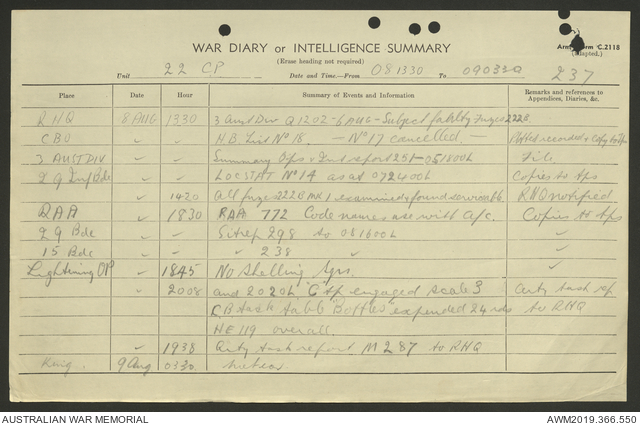 WAR DIARY or INTELLIGENCE SUMMARY
Army Form C.2118
(Erase heading not required)
(Adapted.)
Unit 22 CP Date and Time—From 081330 To 090330 237
Place Date Hour Summary of Events and Information Remarks and references to Appendices, Diaries, &c.
RHQ 8 AUG 1330 3 Aust Div Q1202 - 6 AUG - Subject faulty Fuzes 222B
CBO ✓ H.B. List No 18. — No 17 cancelled — Plotted recorded & Copy to Tps
3 AUST DIV ✓ Summary Ops & Int report 251 - 051800L File.
29 Inf Bde ✓ LOCSTAT No 14 as at 072400L Copies to tps
✓ 1420 All fuzes 222B MK 1 examined & found serviceable RHQ notified
RAA ✓ 1830 RAA 772 Code names use with a/c. Copies to tps
29 Bde ✓ Sitrep 298 to 081600L ✓
15 Bde ✓ " 238 " ✓
Lightning OP ✓ 1845 No Shelling Yrs. ✓
✓ 2008 and 2020L "C" Tp engaged scale 3 Arty task rep.
CB task table "Bottles" expended 24 rds to RHQ
HE 119 overall.
✓ 1938 Arty task report M287 to RHQ
King. 9 Aug 0330
AUSTRALIAN WAR MEMORIAL
AWM2019.366.550